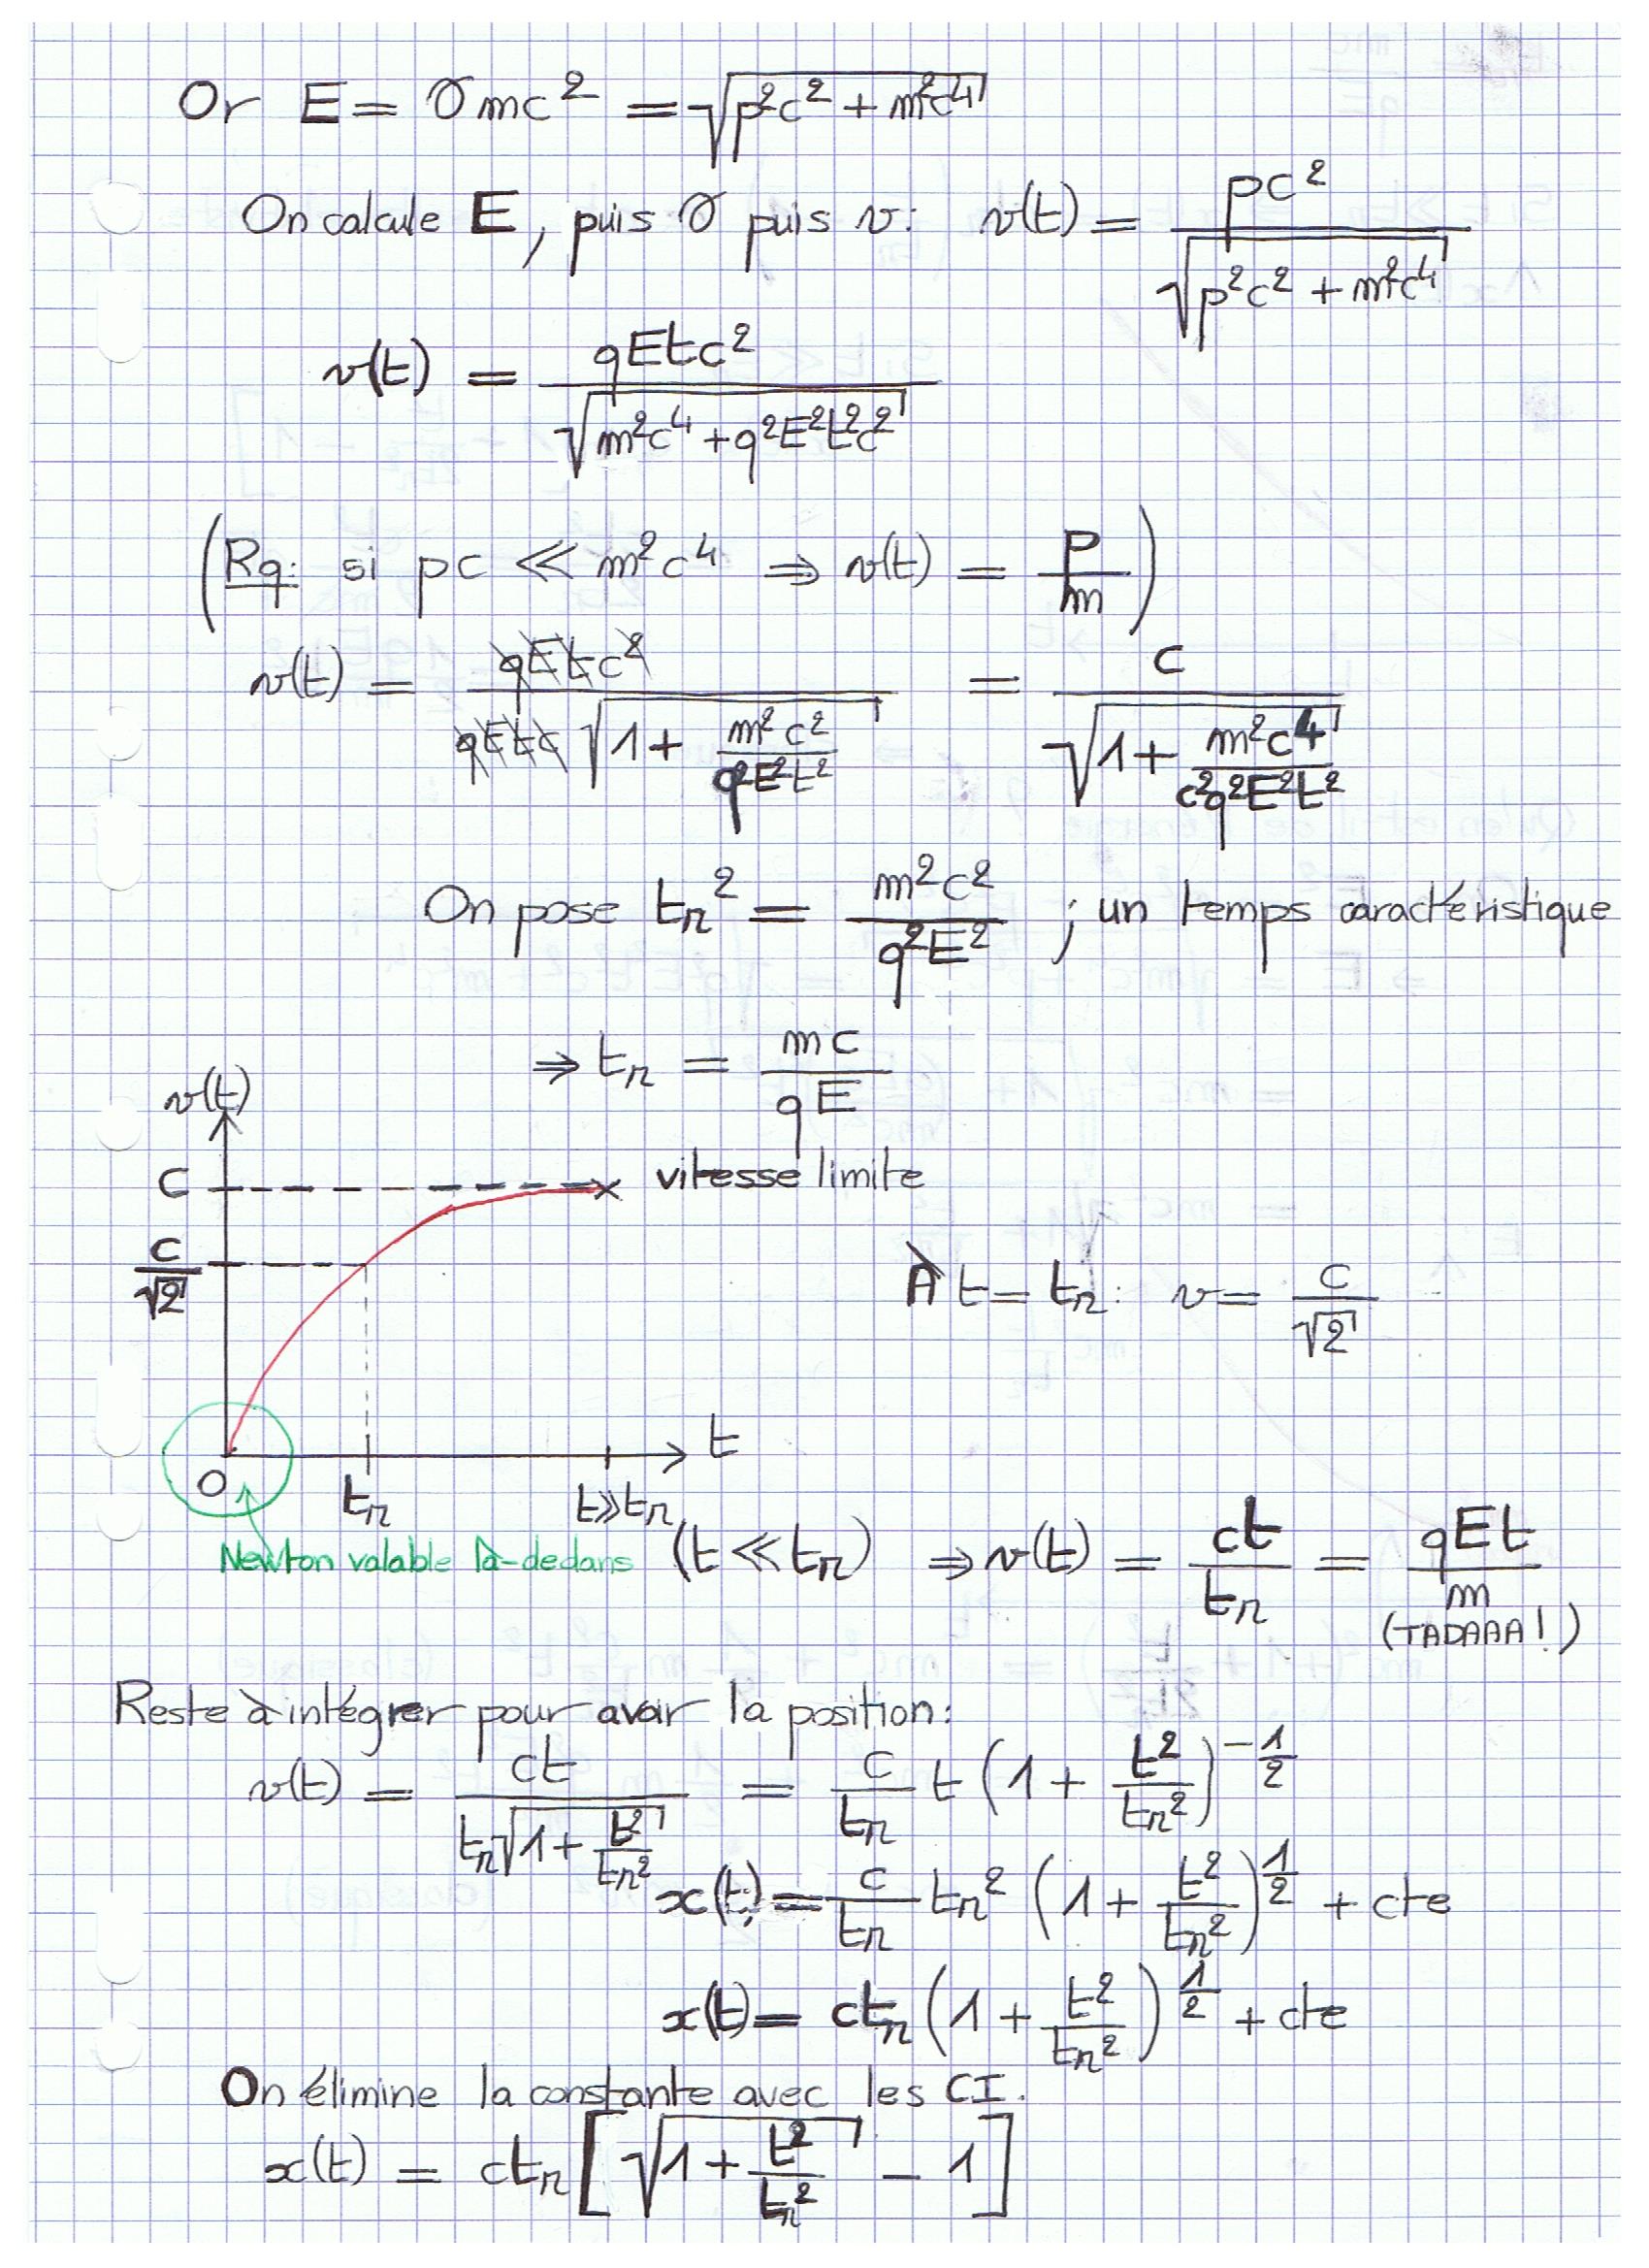 Or E = γmc² = √(p²c² + m²c⁴)
On calcule E, puis γ puis v: v(t) = pc² / √(p²c² + m²c⁴)
v(t) = qEtc² / √(m²c⁴ + q²E²t²c²)
(Rq: si pc ≪ m²c⁴ ⇒ v(t) = p/m)
v(t) = qEtc² / (qEtc √(1 + m²c²/(q²E²t²))) = c / √(1 + m²c⁴/(c²q²E²t²))
On pose tr² = m²c²/(q²E²) ; un temps caractéristique
⇒ tr = mc/(qE)
v(t)
c
vitesse limite
c/√2
À t = tr: v = c/√2
t
O
tr
t≫tr
Newton valable là-dedans (t ≪ tr) ⇒ v(t) = ct/tr = qEt/m
(TADAAA!)
Reste à intégrer pour avoir la position:
v(t) = ct / (tr√(1 + t²/tr²)) = c/tr t (1 + t²/tr²)^(-1/2)
x(t) = c/tr tr² (1 + t²/tr²)^(1/2) + cte
x(t) = ctr (1 + t²/tr²)^(1/2) + cte
On élimine la constante avec les CI.
x(t) = ctr [√(1 + t²/tr²) - 1]